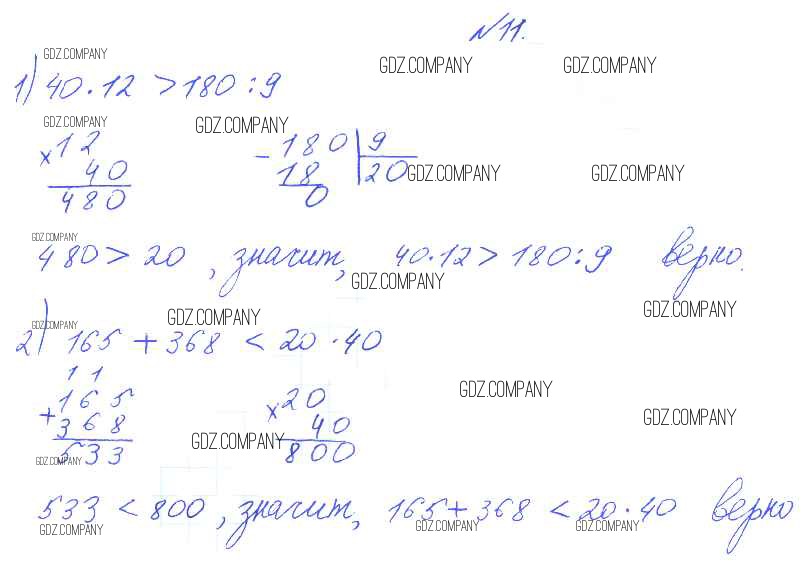 №11.
GDZ.COMPANY
GDZ.COMPANY GDZ.COMPANY
1) 40·12 > 180:9
GDZ.COMPANY GDZ.COMPANY
×12 -180|9
40 18 20 GDZ.COMPANY GDZ.COMPANY
480 0
GDZ.COMPANY
480 > 20, значит, 40·12 > 180:9 верно.
GDZ.COMPANY
GDZ.COMPANY GDZ.COMPANY GDZ.COMPANY
2) 165 + 368 < 20·40
11
GDZ.COMPANY
+165 ×20
368 40 GDZ.COMPANY
GDZ.COMPANY
533 800
GDZ.COMPANY
533 < 800, значит, 165+368 < 20·40 верно
GDZ.COMPANY GDZ.COMPANY GDZ.COMPANY